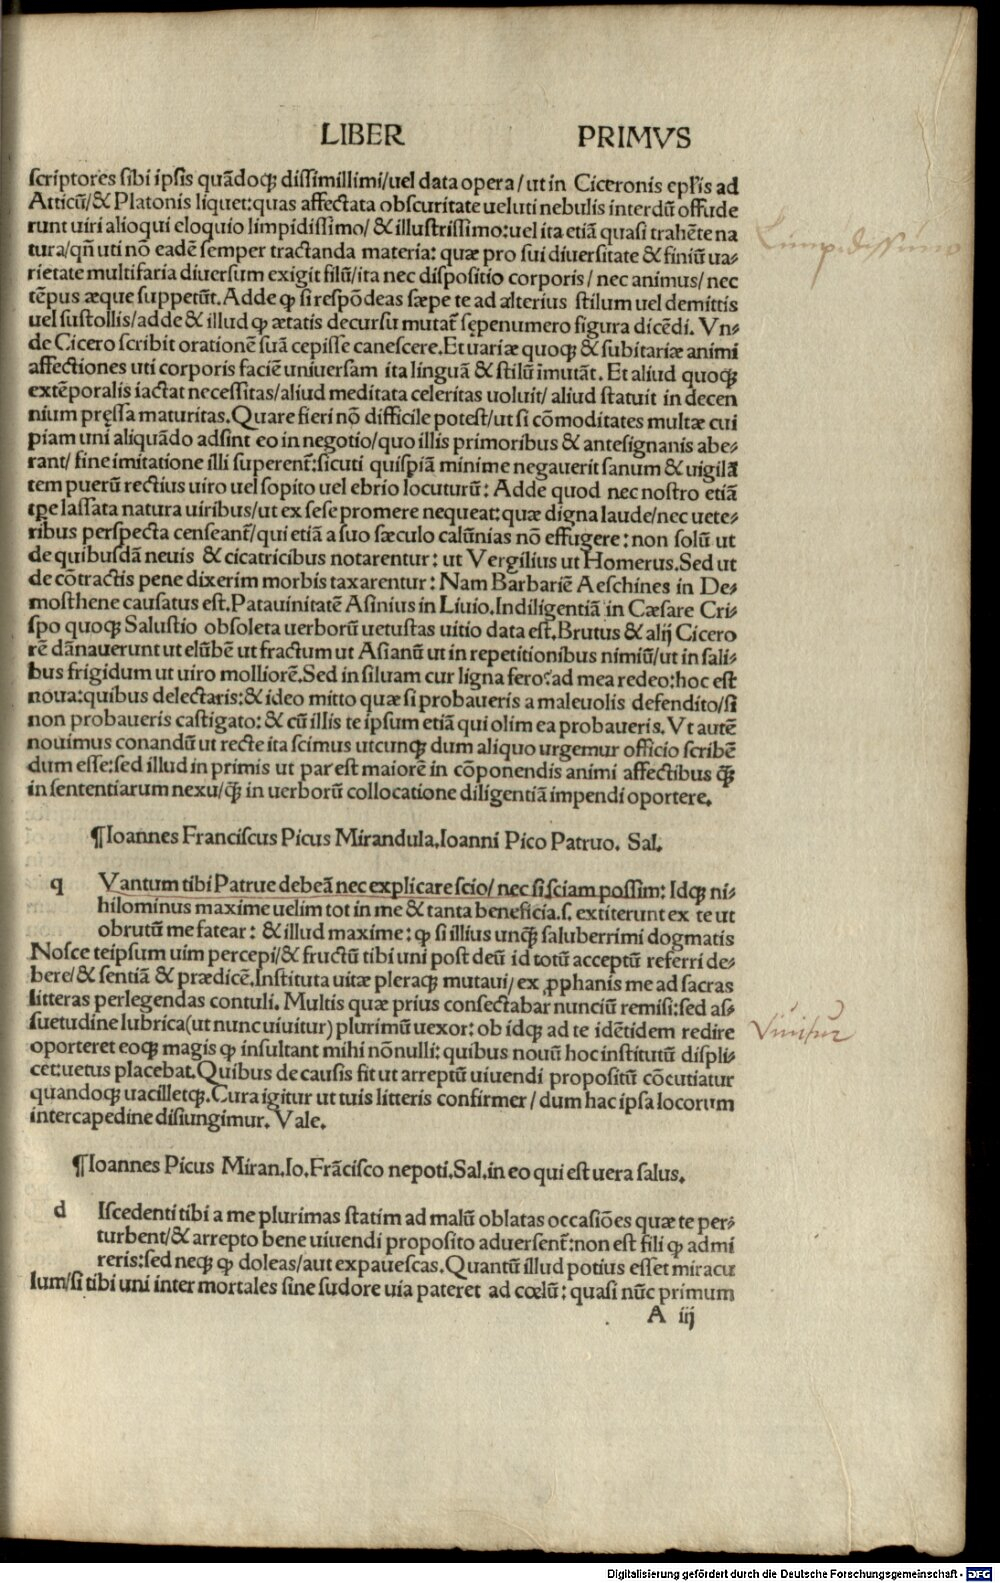 LIBER PRIMVS
scriptores sibi ipsis quãdoqꝫ dissimillimi/uel data opera/ut in Ciceronis epl̃is ad
Atticũ/& Platonis liquet:quas affectata obscuritate ueluti nebulis interdũ offude
runt uiri alioqui eloquio limpidissimo/ & illustrissimo:uel ita etiã quasi trahẽte na
tura/qñ uti nõ eadẽ semper tractanda materia: quæ pro sui diuersitate & finiũ ua⸗
rietate multifaria diuersum exigit filũ/ita nec dispositio corporis/ nec animus/ nec
tẽpus æque suppetũt.Adde ꝙ si respõdeas sæpe te ad alterius stilum uel demittis
uel sustollis/adde & illud ꝙ ætatis decursu mutat̃ sępenumero figura dicẽdi. Vn⸗
de Cicero scribit orationẽ suã cepisse canescere.Et uariæ quoqꝫ & subitariæ animi
affectiones uti corporis faciẽ uniuersam ita linguã & stilũ ĩmutãt. Et aliud quoqꝫ
extẽporalis iactat necessitas/aliud meditata celeritas uoluit/ aliud statuit in decen
nium pręssa maturitas.Quare fieri nõ difficile potest/ut si cõmoditates multæ cui
piam uni aliquãdo adsint eo in negotio/quo illis primoribus & antesignanis abe⸗
rant/ sine imitatione illi superent̃:sicuti quispiã minime negauerit sanum & uigilã
tem puerũ rectius uiro uel sopito uel ebrio locuturũ: Adde quod nec nostro etiã
tꝑe lassata natura uiribus/ut ex sese promere nequeat:quæ digna laude/nec uete⸗
ribus perspecta censeant̃/qui etiã a suo sæculo calũnias nõ effugere: non solũ ut
de quibusdã neuis & cicatricibus notarentur: ut Vergilius ut Homerus.Sed ut
de cõtractis pene dixerim morbis taxarentur: Nam Barbariẽ Aeschines in De⸗
mosthene causatus est.Patauinitatẽ Asinius in Liuio.Indiligentiã in Cæsare Cri⸗
spo quoqꝫ Salustio obsoleta uerborũ uetustas uitio data est.Brutus & alij Cicero
rẽ dãnauerunt ut elũbẽ ut fractum ut Asianũ ut in repetitionibus nimiũ/ut in sali⸗
bus frigidum ut uiro molliorẽ.Sed in siluam cur ligna fero?ad mea redeo:hoc est
noua:quibus delectaris:& ideo mitto quæ si probaueris a maleuolis defendito/si
non probaueris castigato: & cũ illis te ipsum etiã qui olim ea probaueris. Vt autẽ
nouimus conandũ ut recte ita scimus utcunqꝫ dum aliquo urgemur officio scribẽ
dum esse:sed illud in primis ut par est maiorẽ in cõponendis animi affectibus ꝗ̃
in sententiarum nexu/ꝗ̃ in uerborũ collocatione diligentiã impendi oportere.
¶Ioannes Franciscus Picus Mirandula.Ioanni Pico Patruo. Sal.
q Vantum tibi Patrue debeã nec explicare scio/ nec si sciam possim: Idqꝫ ni⸗
hilominus maxime uelim tot in me & tanta beneficia.s. extiterunt ex te ut
obrutũ me fatear: & illud maxime: ꝙ si illius unqꝫ saluberrimi dogmatis
Nosce teipsum uim percepi/& fructũ tibi uni post deũ id totũ acceptũ referri de⸗
bere/& sentiã & prædicẽ.Instituta uitæ pleraqꝫ mutaui/ ex ꝓphanis me ad sacras
litteras perlegendas contuli. Multis quæ prius consectabar nunciũ remisi:sed as⸗
suetudine lubrica(ut nunc uiuitur) plurimũ uexor: ob idqꝫ ad te idẽtidem redire
oporteret eoqꝫ magis ꝙ insultant mihi nõnulli: quibus nouũ hoc institutũ displi⸗
cet:uetus placebat.Quibus de causis fit ut arreptũ uiuendi propositũ cõcutiatur
quandoqꝫ uacilletqꝫ.Cura igitur ut tuis litteris confirmer/ dum hac ipsa locorum
intercapedine disiungimur. Vale.
¶Ioannes Picus Miran.Io.Frãcisco nepoti.Sal.in eo qui est uera salus.
d Iscedenti tibi a me plurimas statim ad malũ oblatas occasiões quæ te per⸗
turbent/& arrepto bene uiuendi proposito aduersent̃:non est fili ꝙ admi
reris:sed neqꝫ ꝙ doleas/aut expauescas.Quantũ illud potius esset miracu
lum/si tibi uni inter mortales sine sudore uia pateret ad cœlũ: quasi nũc primum
A iij
Limpidissimo
Viuitur
Digitalisierung gefördert durch die Deutsche Forschungsgemeinschaft - DFG